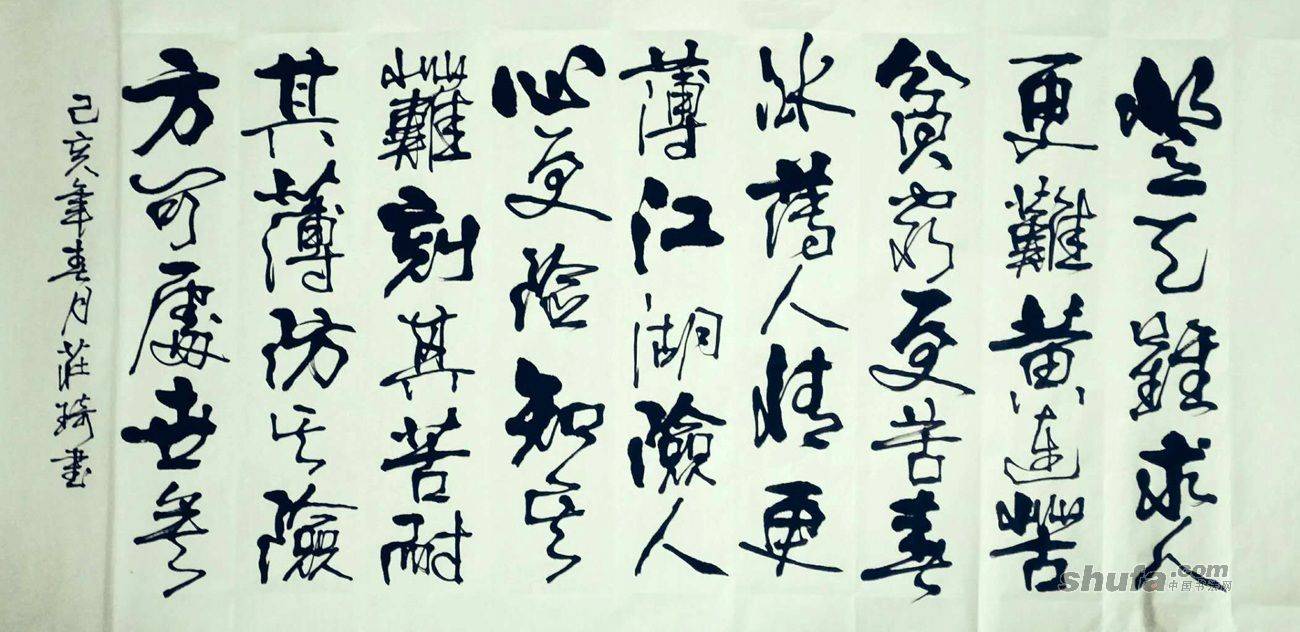 登天難求人
更難黄連苦
貧窮更苦春
冰薄人情更
薄江湖險人
心更险知其
難刻其苦耐
其薄防其險
方可處世矣
己亥年春月莊琦書
shufa.com
中国书法网